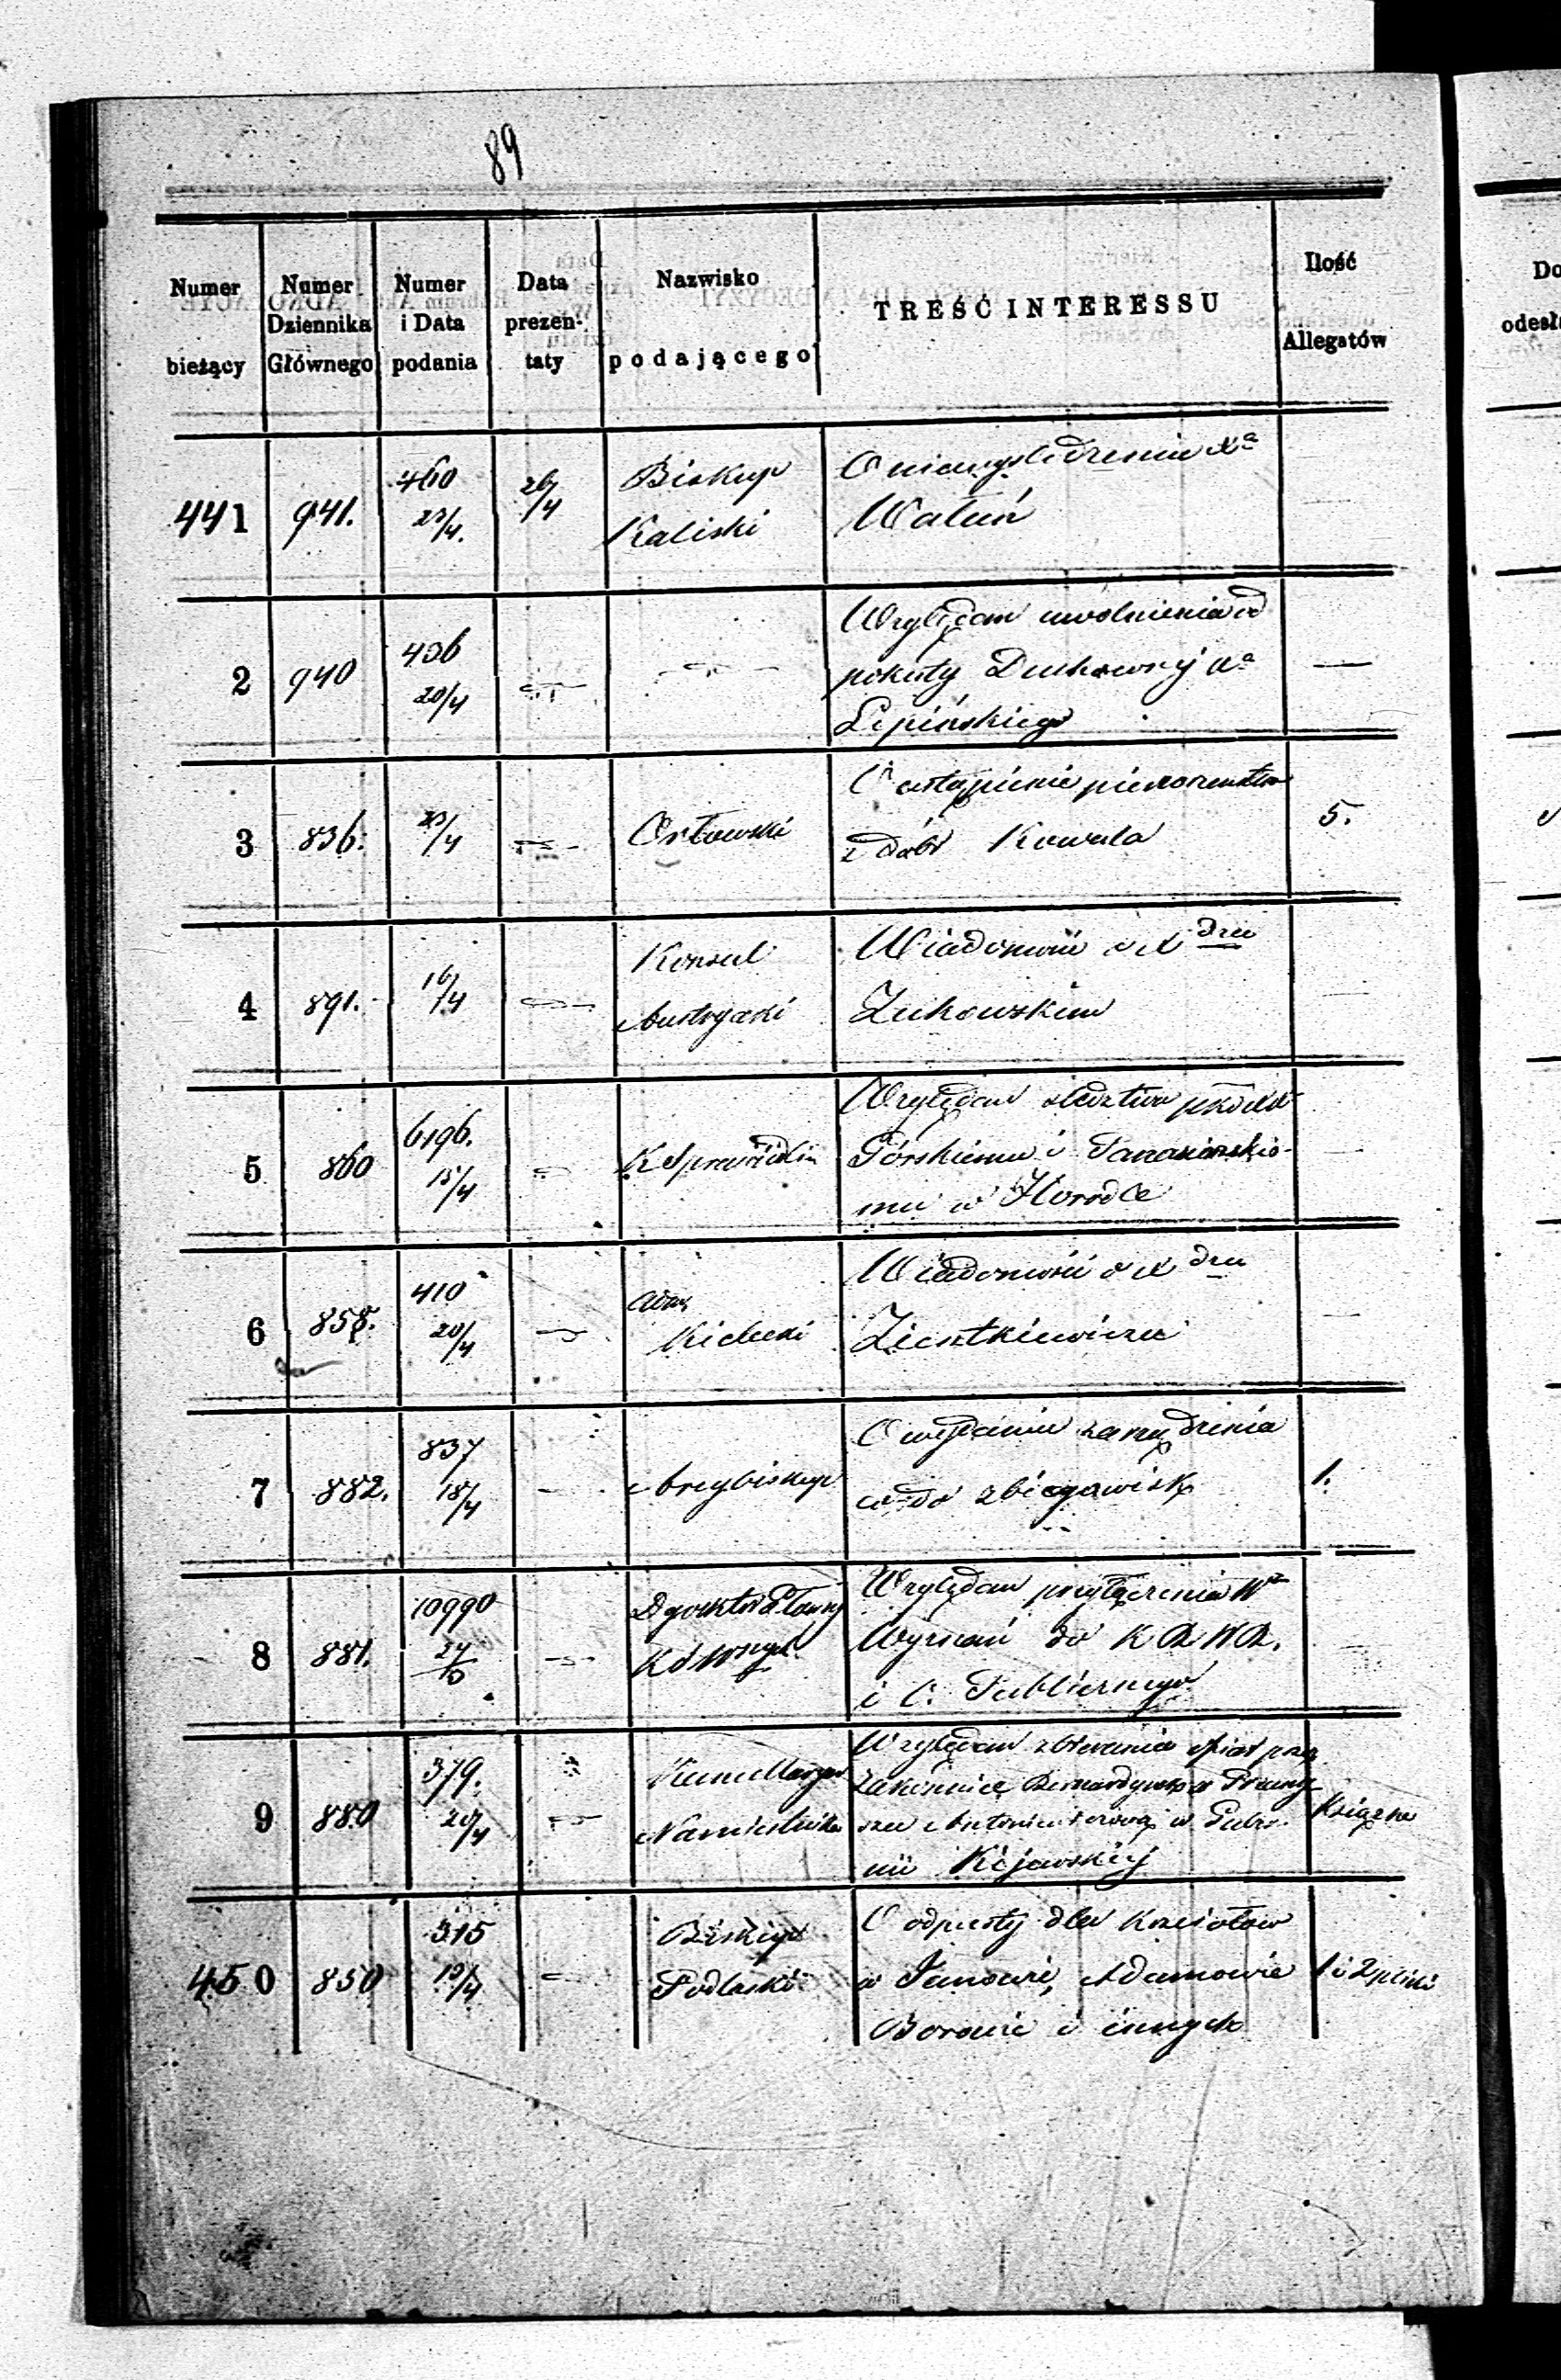 89
Numer bieżący
Numer Dziennika Głównego
Numer i Data podania
Data prezentaty
Nazwisko podającego
TREŚĆ INTERESSU
Ilość Allegatów
441 941. 460 23/4. 26/4 Biskup Kaliski
O niewyśledzeniu Xa
Watuń
2 940 436 20/4
Względem uwolnienia od
pokuty Duchownej Xa
Lepińskiego
—
3 836. 23/4 Orłowski
ustąpienie pierwszeństwa
z dóbr Kowala
5.
4 891. 16/4 Konsul Austryacki
Wiadomość o X dzu
Żukowskim
5 860 6196. 15/4 K Sprawiedliw
Względem śledztwa pko XX
Górskiemu i Tanasiewskie-
mu w Horodle
6 858. 410 20/4 Adm Kielecki
Wiadomość o X dzu
Zientkiewiczu
7 882. 837 18/4 Arcybiskup
O wydanie zarządzenia
co do zbiegowisk
1.
8 881. Dyrektor Główny
10990
Względem przyłączenia Wu
Wyznań do K R W R.
i O. Publicznego
9 880 379. 20/4 Namiestnika
Względem zbierania ofiar przez
Zakonnicę Bernardynkę
w Guber-
nii Kijowskiej
Książka
450 850 315 19/4 Biskup Podlaski
O odpusty dla Kościołów
w Janowie, Adamowie
Borowie i innych
1 i 2 pliki
Do
odesła